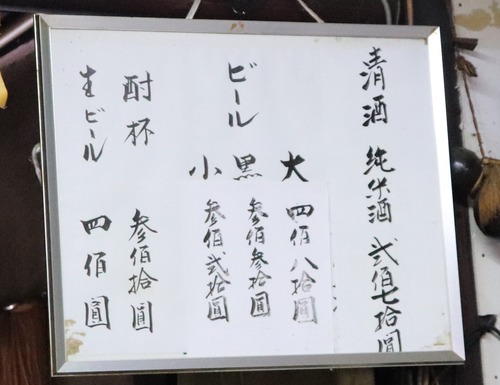 清酒 純米酒 弐佰七拾圓
ビール
大 四佰八拾圓
黒 参佰参拾圓
小 参佰弐拾圓
酎杯 参佰拾圓
生ビール 四佰圓